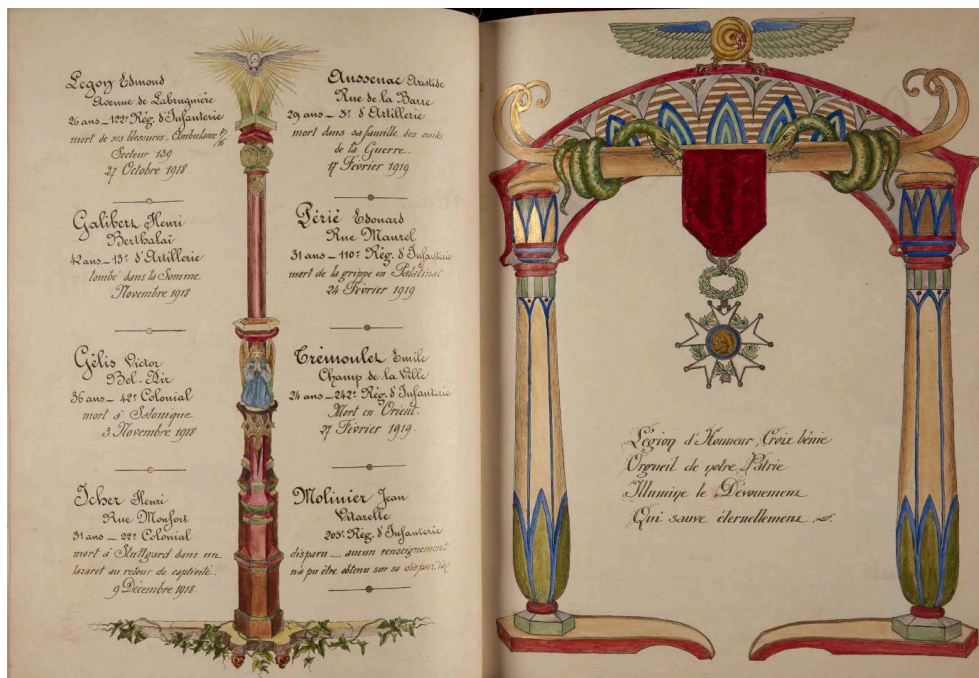 Legon Edmond
Avenue de Labruguière
26 ans _ 122e Rég. d'Infanterie
mort de ses blessures. Ambulance
Secteur 139
27 Octobre 1918
Galibert Henri
Berthalaï
42 ans _ 13e d'Artillerie
tombé dans la Somme
Novembre 1918
Gélis Victor
Bel-Air
36 ans _ 42e Colonial
mort à Salonique
3 Novembre 1918
Icher Henri
Rue Monfort
31 ans _ 22e Colonial
mort à Stuttgard dans un
lazaret au retour de captivité.
9 Décembre 1918.
Aussenac Aristide
Rue de la Barre
29 ans _ 3e d'Artillerie
mort dans sa famille des suites
de la Guerre.
17 Février 1919
Périé Edouard
Rue Maurel
31 ans _ 110e Rég. d'Infanterie
mort de la grippe en Palatinat
24 Février 1919
Trémoulet Emile
Champ de la Ville
24 ans _ 242e Rég. d'Infanterie
Mort en Orient.
27 Février 1919.
Molinier Jean
Vitarelle
205e Rég. d'Infanterie
disparu _ aucun renseignement
n'a pu être obtenu sur sa disparition
Légion d'Honneur, Croix bénie
Orgueil de notre Patrie
Illumine le Dévouement
Qui sauve éternellement